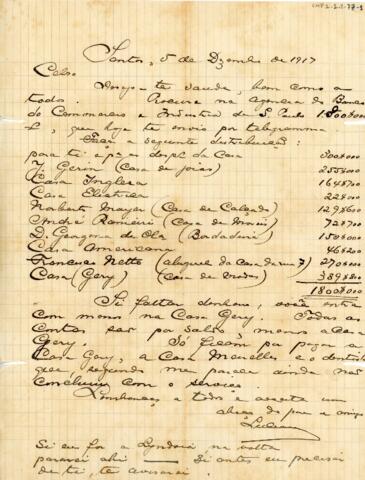 Santos, 5 de Dezembro de 1917
Celso
Desejo-te saude, bem como a
todos. Procura na Agencia do Banco
do Commercio e Industria de S. Paulo
que hoje te envio por telegramma
a seguinte distribuição:
para ti e para da Casa 300$000
J. Gerin (Casa de joias) 255$000
Casa Ingleza
Casa Electrica 22$000
Norberto Mayer (Casa de Calçado)
André Ramieri (Casa de
D. de Ola (Bordadeira) 150$000
Casa Americana
Francisco Netto (aluguel da casa da rua 7) 270$000
Casa (Gery) (casa de
1:800$000
Si faltar dinheiro, você entra
com menos na Casa Gery. Todas as
contas são por saldo, menos a casa
Gery. Só ficam por pagar a
Casa Gery, a Casa Meirelles e o dentista
que, segundo me parece ainda não
concluiu com o serviço.
Lembranças a todos e aceita um
abraço do pae e amigo
Si eu for a Lyndoia na volta
pararei ahi — Si antes eu precisar
de ti, te avisarei.